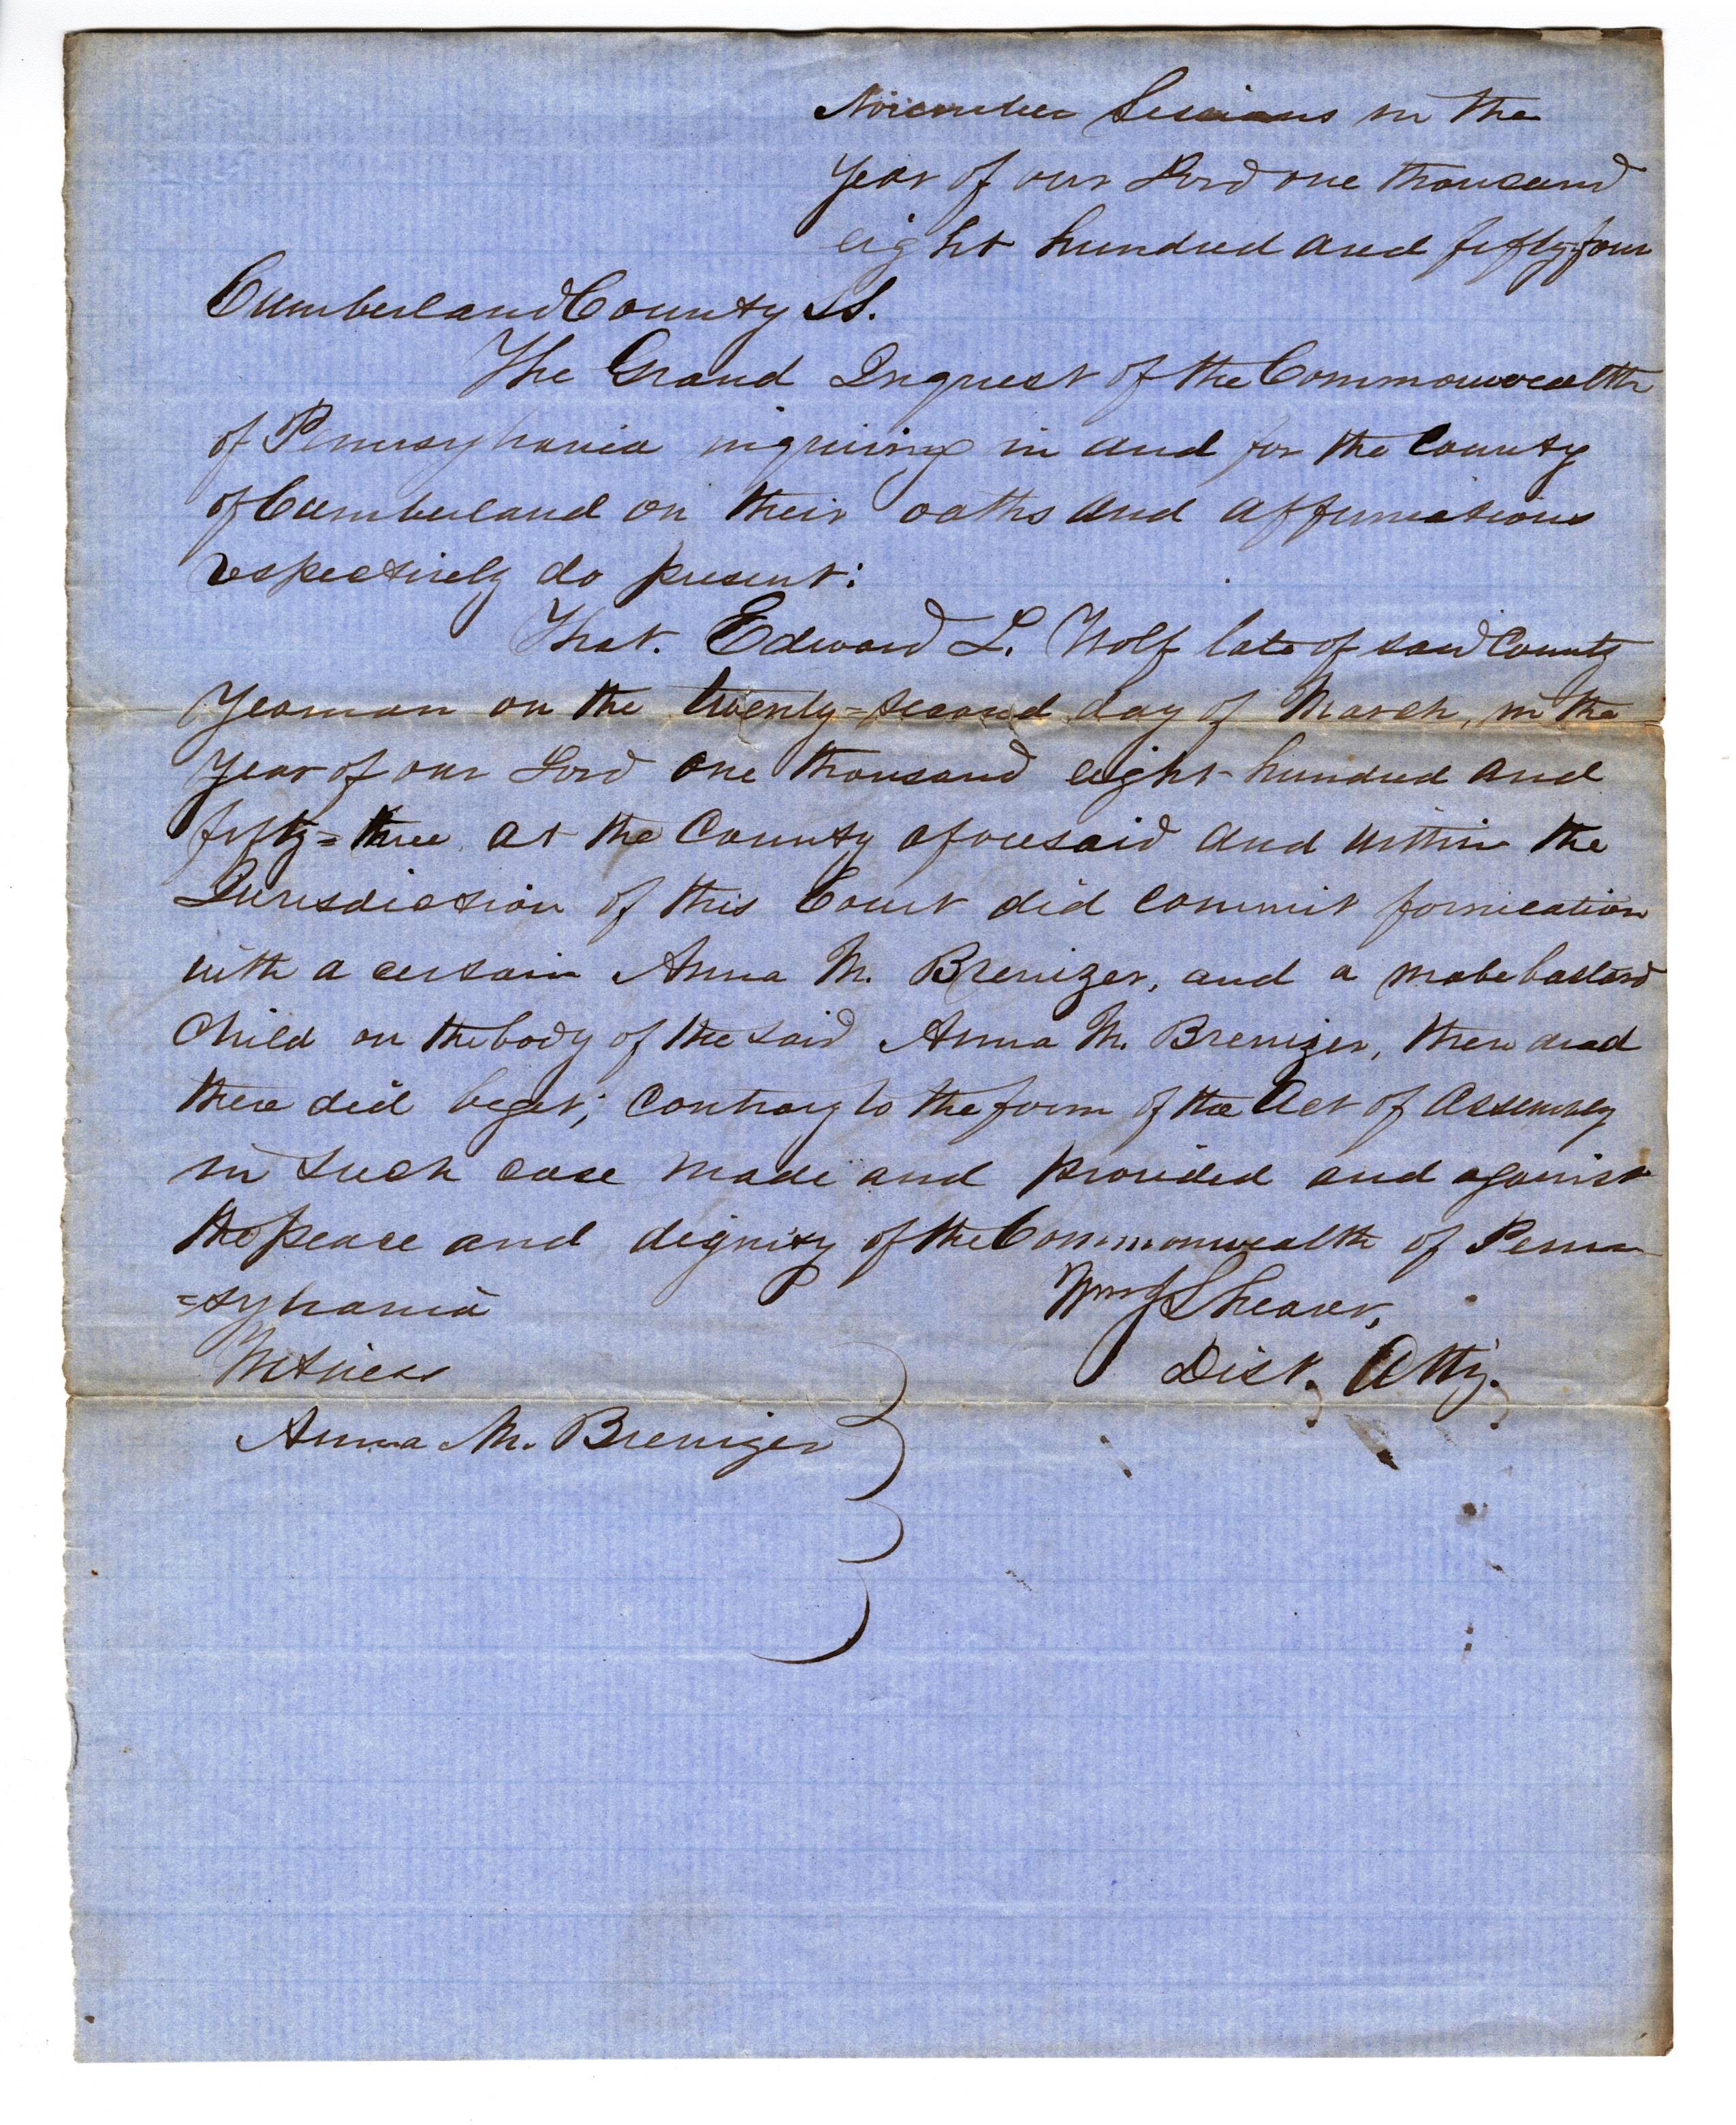 November Sessions in the
year of our Lord one thousand
eight hundred and fifty-four
Cumberland County SS.
The Grand Inquest of the Commonwealth
of Pennsylvania inquiring in and for the County
of Cumberland on their oaths and affirmations
respectively do present:
That. Edward L. Wolf late of said County
Yeoman on the twenty=second day of March, in the
year of our Lord one thousand eight-hundred and
fifty=three at the County aforesaid and within the
Jurisdiction of this Court did commit fornication
with a certain Anna M. Brenizer, and a male bastard
Child on the body of the said Anna M. Brenizer, then and
there did beget; contrary to the form of the Act of Assembly
in such case made and provided and against
the peace and dignity of the Commonwealth of Penn
=sylvania
Wm J Shearer,
Witness
Dist. Atty.
Anna M. Brenizer